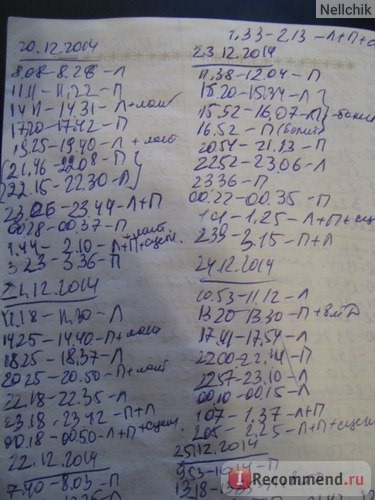 Nellchik
20.12.2014
8.08-8.28-Л
11.11-11.22-П
14.11-14.31-Л+
17.20-17.42-П
19.25-19.40-Л+
21.46-22.08-П
22.15-22.30-Л
23.26-23.44-Л+П
00.28-00.37-П
1.44-2.10-Л+П+сцеж.
3.23-3.36-П
21.12.2014
11.18-11.30-Л
14.25-14.40-П+
18.25-18.37-Л
20.25-20.50-П+
22.18-22.35-Л
23.18-23.42-П+Л
00.18-00.50-Л+П+сцеж
22.12.2014
7.40-8.03-П
1.33-2.13-Л+П+с
23.12.2014
11.38-12.04-П
15.20-15.34-Л
15.52-16.07-Л
16.52-П
20.54-21.13-П
22.52-23.06-Л
23.36-П
00.22-00.35-П
1.25-Л+П+сцеж
2.39-3.15-П+Л
24.12.2014
10.53-11.12-Л
13.20-13.30-П+
17.41-17.54-Л
22.00-П
22.57-23.10-Л
00.10-00.15-Л
1.07-1.37-Л+П
2.25-Л+П+сцеж
25.12.2014
9.53-10.14-П
13.18-
iRecommend.ru